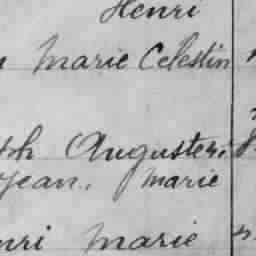 Henri
Marie Celestin
ph Augusteri
Jean, Marie
nri Marie